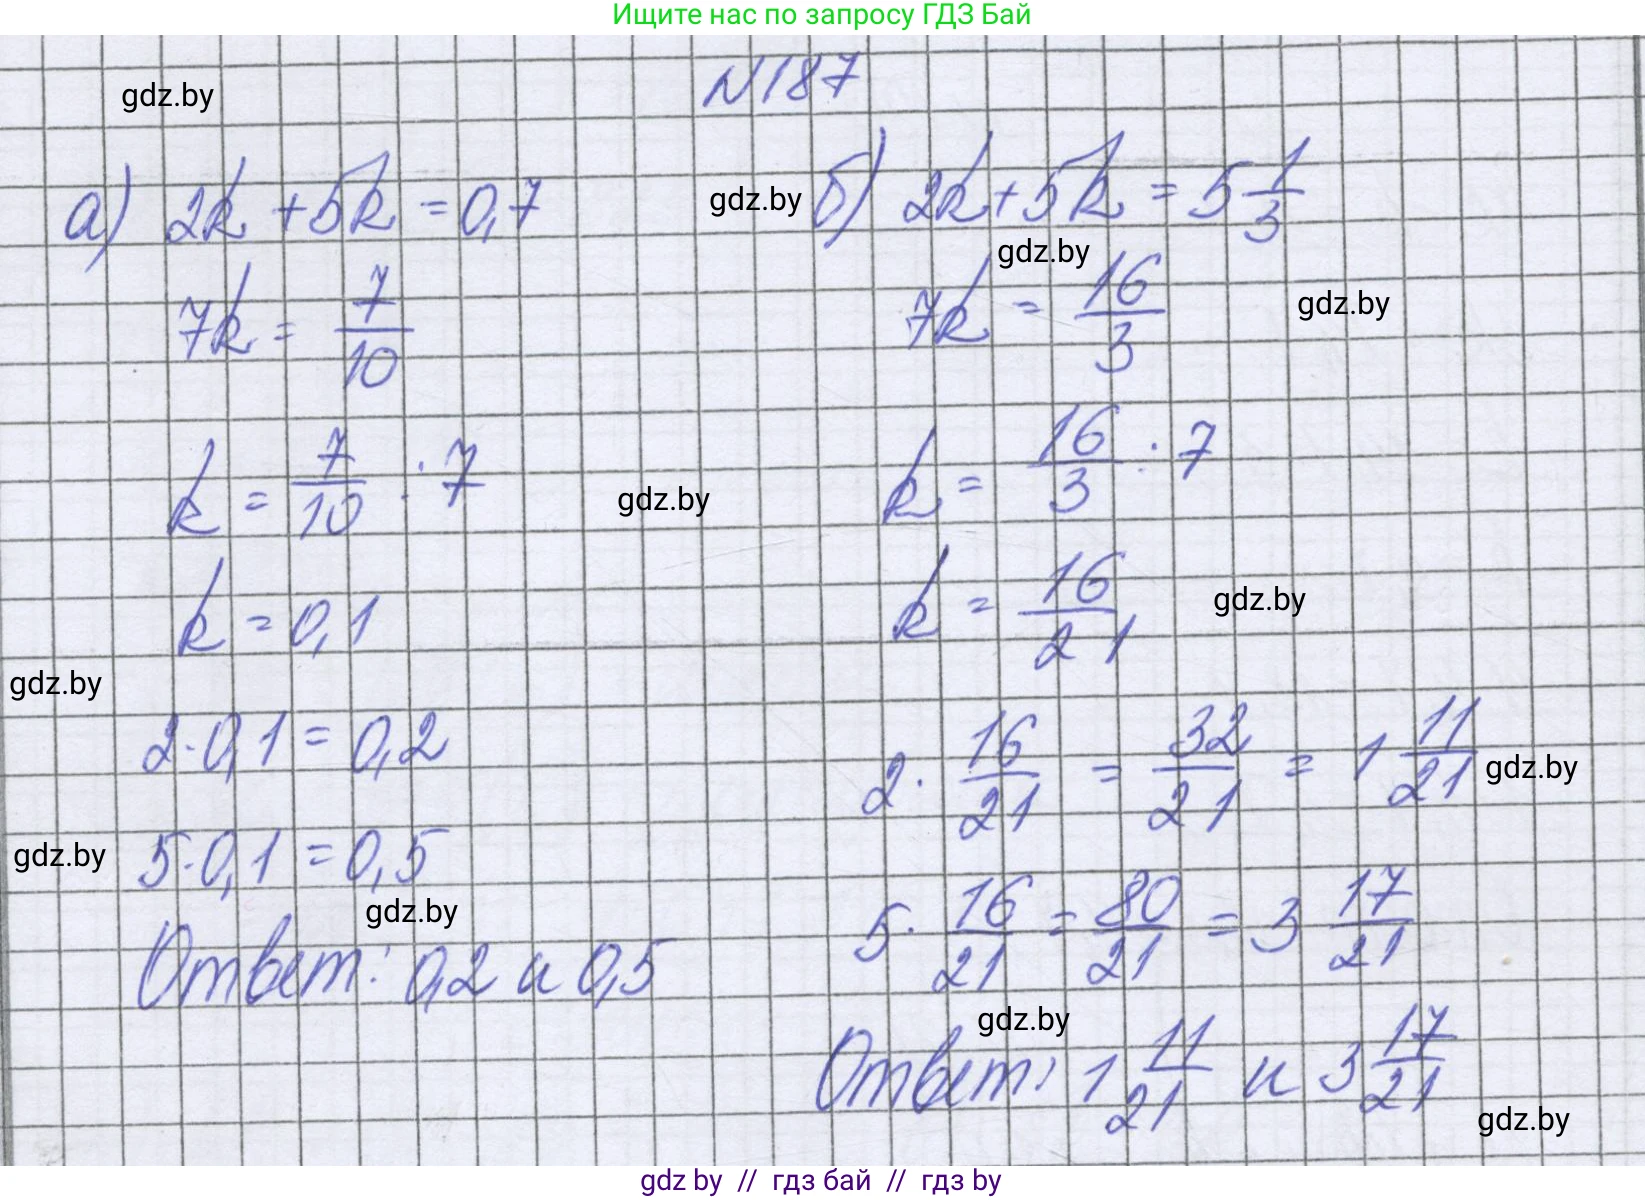 Ищите нас по запросу ГДЗ Бай
N187
gdz.by
а) 2k + 5k = 0,7
7k = 7/10
k = 7/10 : 7
k = 0,1
gdz.by
2 · 0,1 = 0,2
gdz.by
5 · 0,1 = 0,5
gdz.by
Ответ: 0,2 и 0,5
gdz.by
б) 2k + 5k = 5 1/3
gdz.by
gdz.by
7k = 16/3
gdz.by
k = 16/3 : 7
k = 16/21
gdz.by
2 · 16/21 = 32/21 = 1 11/21
gdz.by
5 · 16/21 = 80/21 = 3 17/21
gdz.by
Ответ: 1 11/21 и 3 17/21
gdz.by
gdz by // гдз бай // гдз by